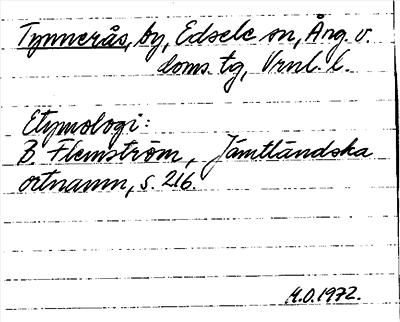 Tynnerås, by, Edsele sn, Ång. v.
doms. tg, Vrnl. l.
Etymologi:
B Flemström, Jämtländska
ortnamn, s. 216.
M.O.1972.